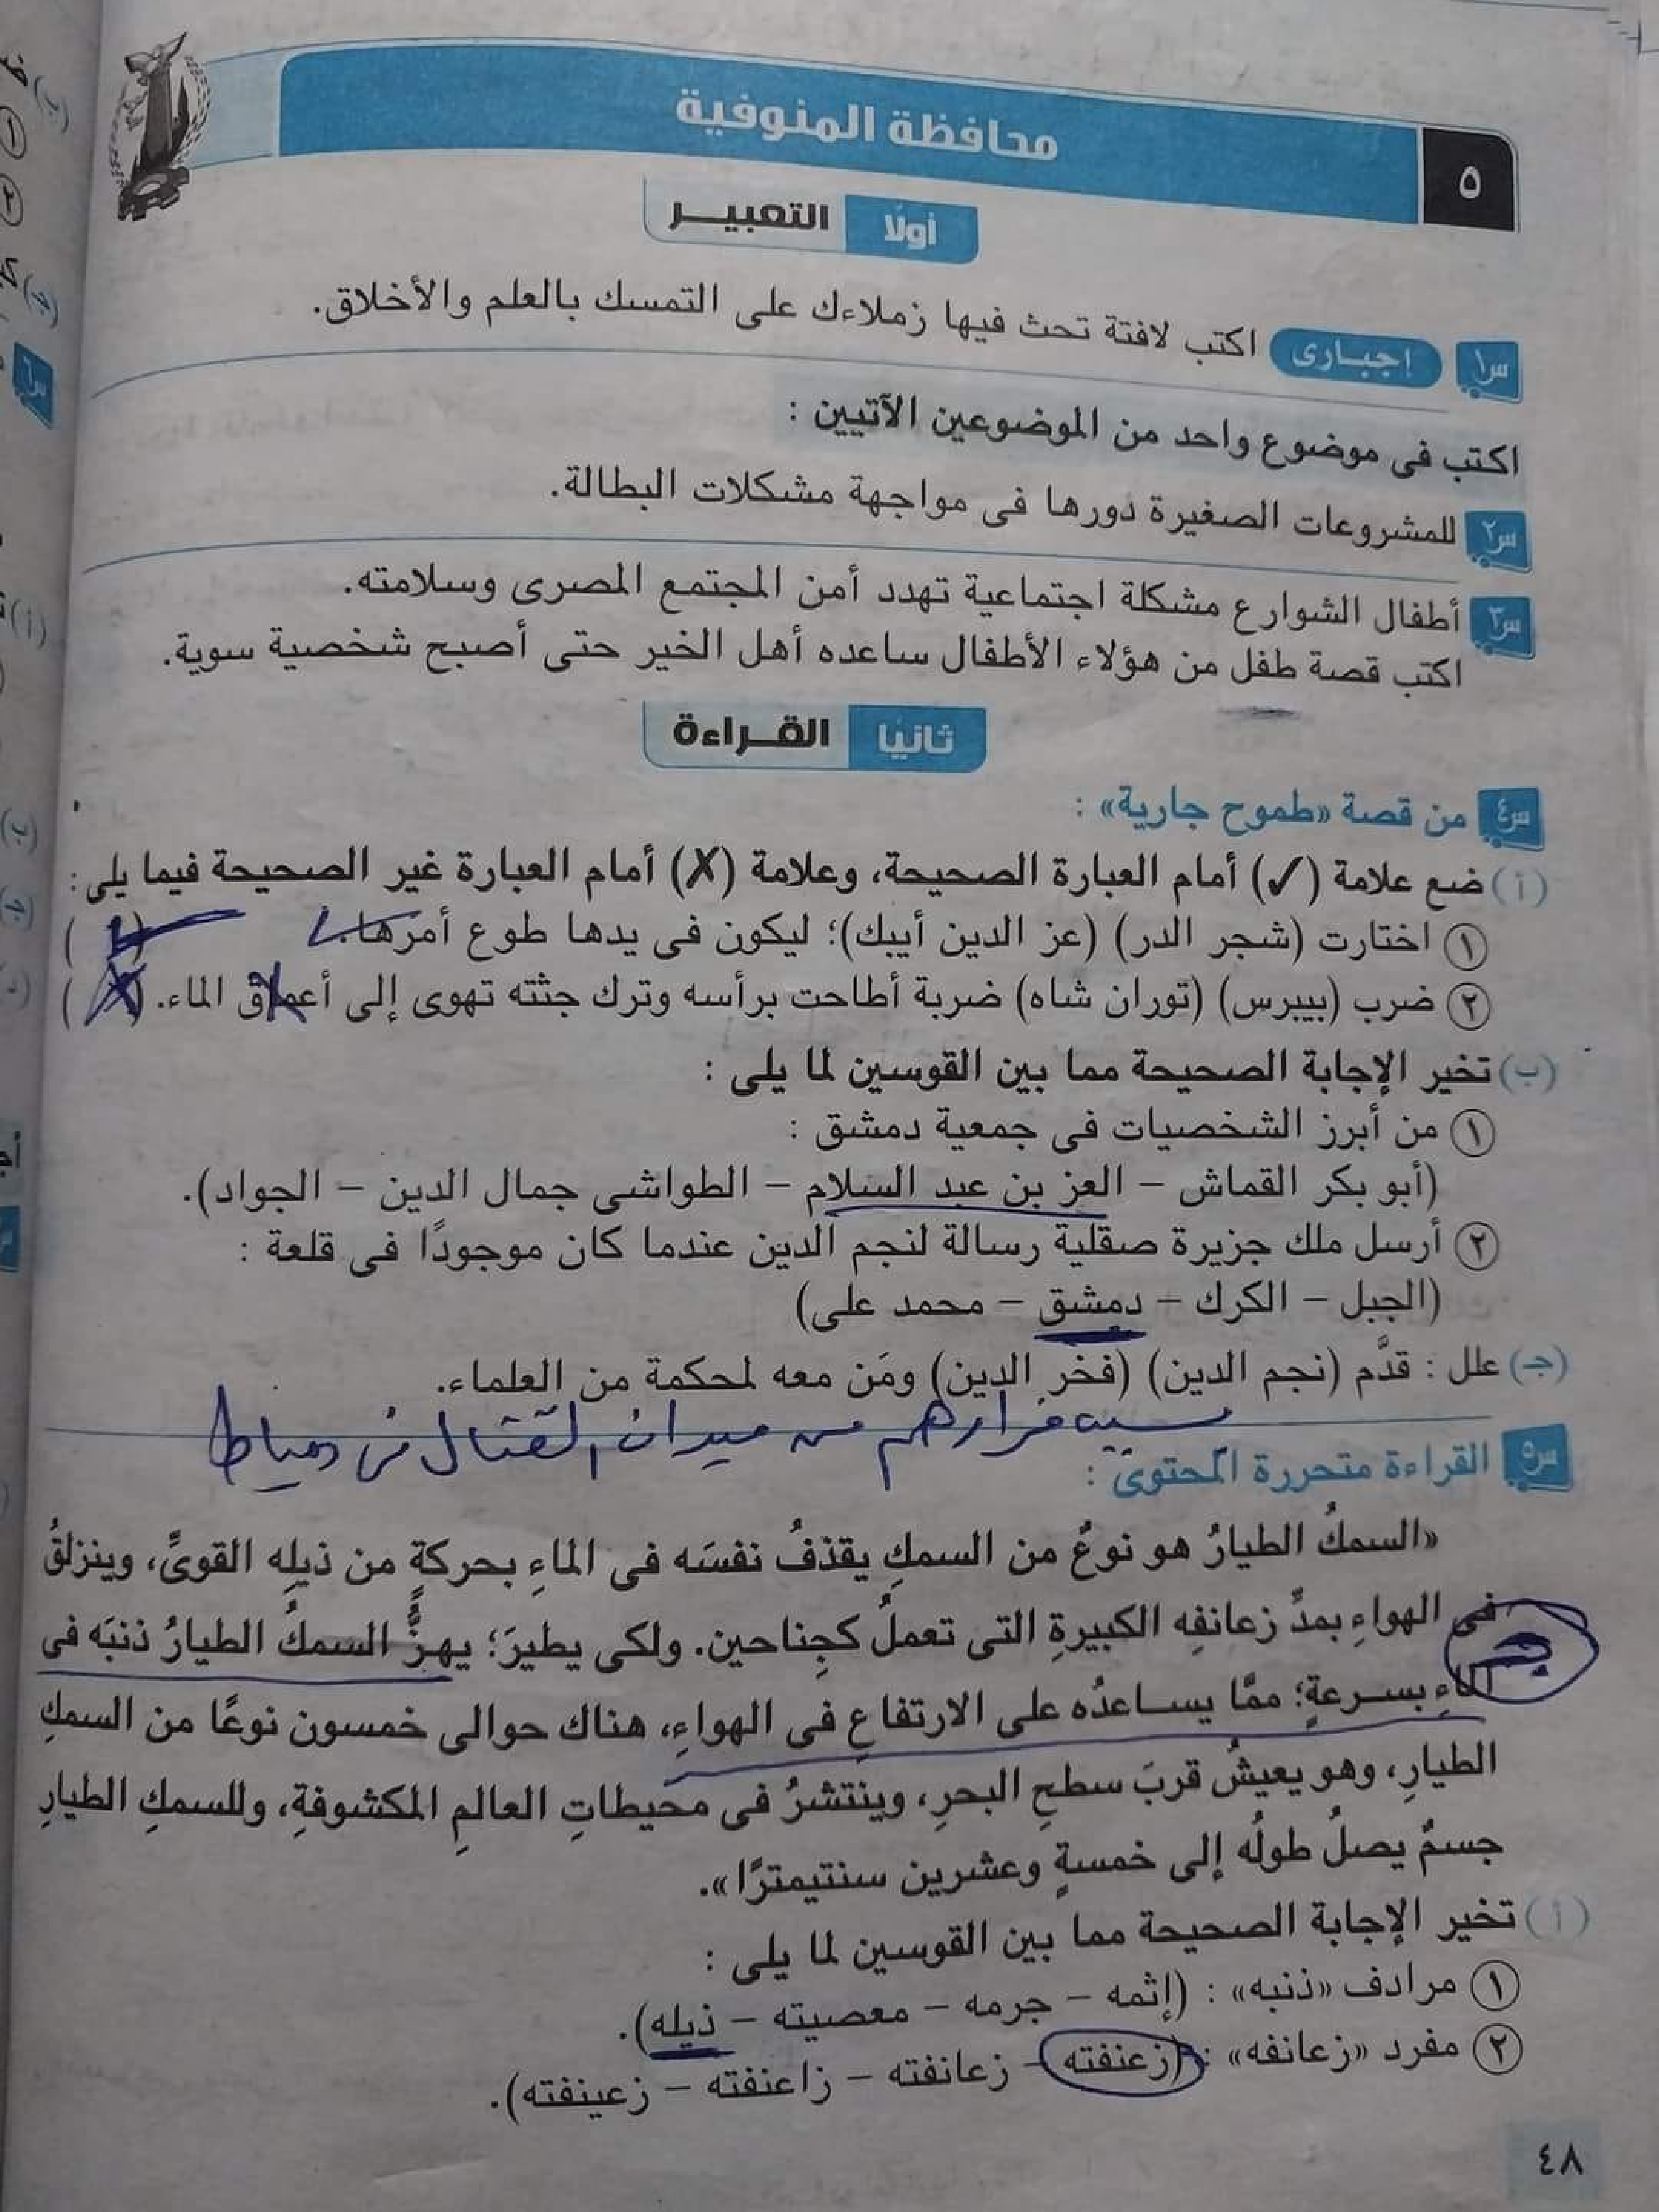 محافظة المنوفية
٥
أولًا التعبير
س١ إجبارى اكتب لافتة تحث فيها زملاءك على التمسك بالعلم والأخلاق.
اكتب فى موضوع واحد من الموضوعين الآتيين :
س٢ للمشروعات الصغيرة دورها فى مواجهة مشكلات البطالة.
س٣ أطفال الشوارع مشكلة اجتماعية تهدد أمن المجتمع المصرى وسلامته.
اكتب قصة طفل من هؤلاء الأطفال ساعده أهل الخير حتى أصبح شخصية سوية.
ثانيًا القراءة
س٤ من قصة «طموح جارية» :
(أ) ضع علامة (✓) أمام العبارة الصحيحة، وعلامة (✗) أمام العبارة غير الصحيحة فيما يلى :
① اختارت (شجر الدر) (عز الدين أيبك)؛ ليكون فى يدها طوع أمرها. ( )
② ضرب (بيبرس) (توران شاه) ضربة أطاحت برأسه وترك جثته تهوى إلى أعماق الماء. (✗)
(ب) تخير الإجابة الصحيحة مما بين القوسين لما يلى :
① من أبرز الشخصيات فى جمعية دمشق :
(أبو بكر القماش – العز بن عبد السلام – الطواشى جمال الدين – الجواد).
② أرسل ملك جزيرة صقلية رسالة لنجم الدين عندما كان موجودًا فى قلعة :
(الجبل – الكرك – دمشق – محمد على)
(جـ) علل : قدَّم (نجم الدين) (فخر الدين) ومَن معه لمحكمة من العلماء.
بسبب فرارهم من ميدان القتال فى دمياط
س٥ القراءة متحررة المحتوى :
«السمكُ الطيارُ هو نوعٌ من السمكِ يقذفُ نفسَه فى الماءِ بحركةٍ من ذيلِه القوىِّ، وينزلقُ
فى الهواءِ بمدِّ زعانفِه الكبيرةِ التى تعملُ كجِناحين. ولكى يطيرَ؛ يهزُّ السمكُ الطيارُ ذنبَه فى
جـ
الماءِ بسرعةٍ؛ ممَّا يساعدُه على الارتفاعِ فى الهواءِ، هناك حوالى خمسون نوعًا من السمكِ
الطيارِ، وهو يعيشُ قربَ سطحِ البحرِ، وينتشرُ فى محيطاتِ العالمِ المكشوفةِ، وللسمكِ الطيارِ
جسمٌ يصلُ طولُه إلى خمسةٍ وعشرين سنتيمترًا».
(أ) تخير الإجابة الصحيحة مما بين القوسين لما يلى :
① مرادف «ذنبه» : (إثمه – جرمه – معصيته – ذيله).
② مفرد «زعانفه» : (زعنفته – زعانفته – زاعنفته – زعينفته).
٤٨